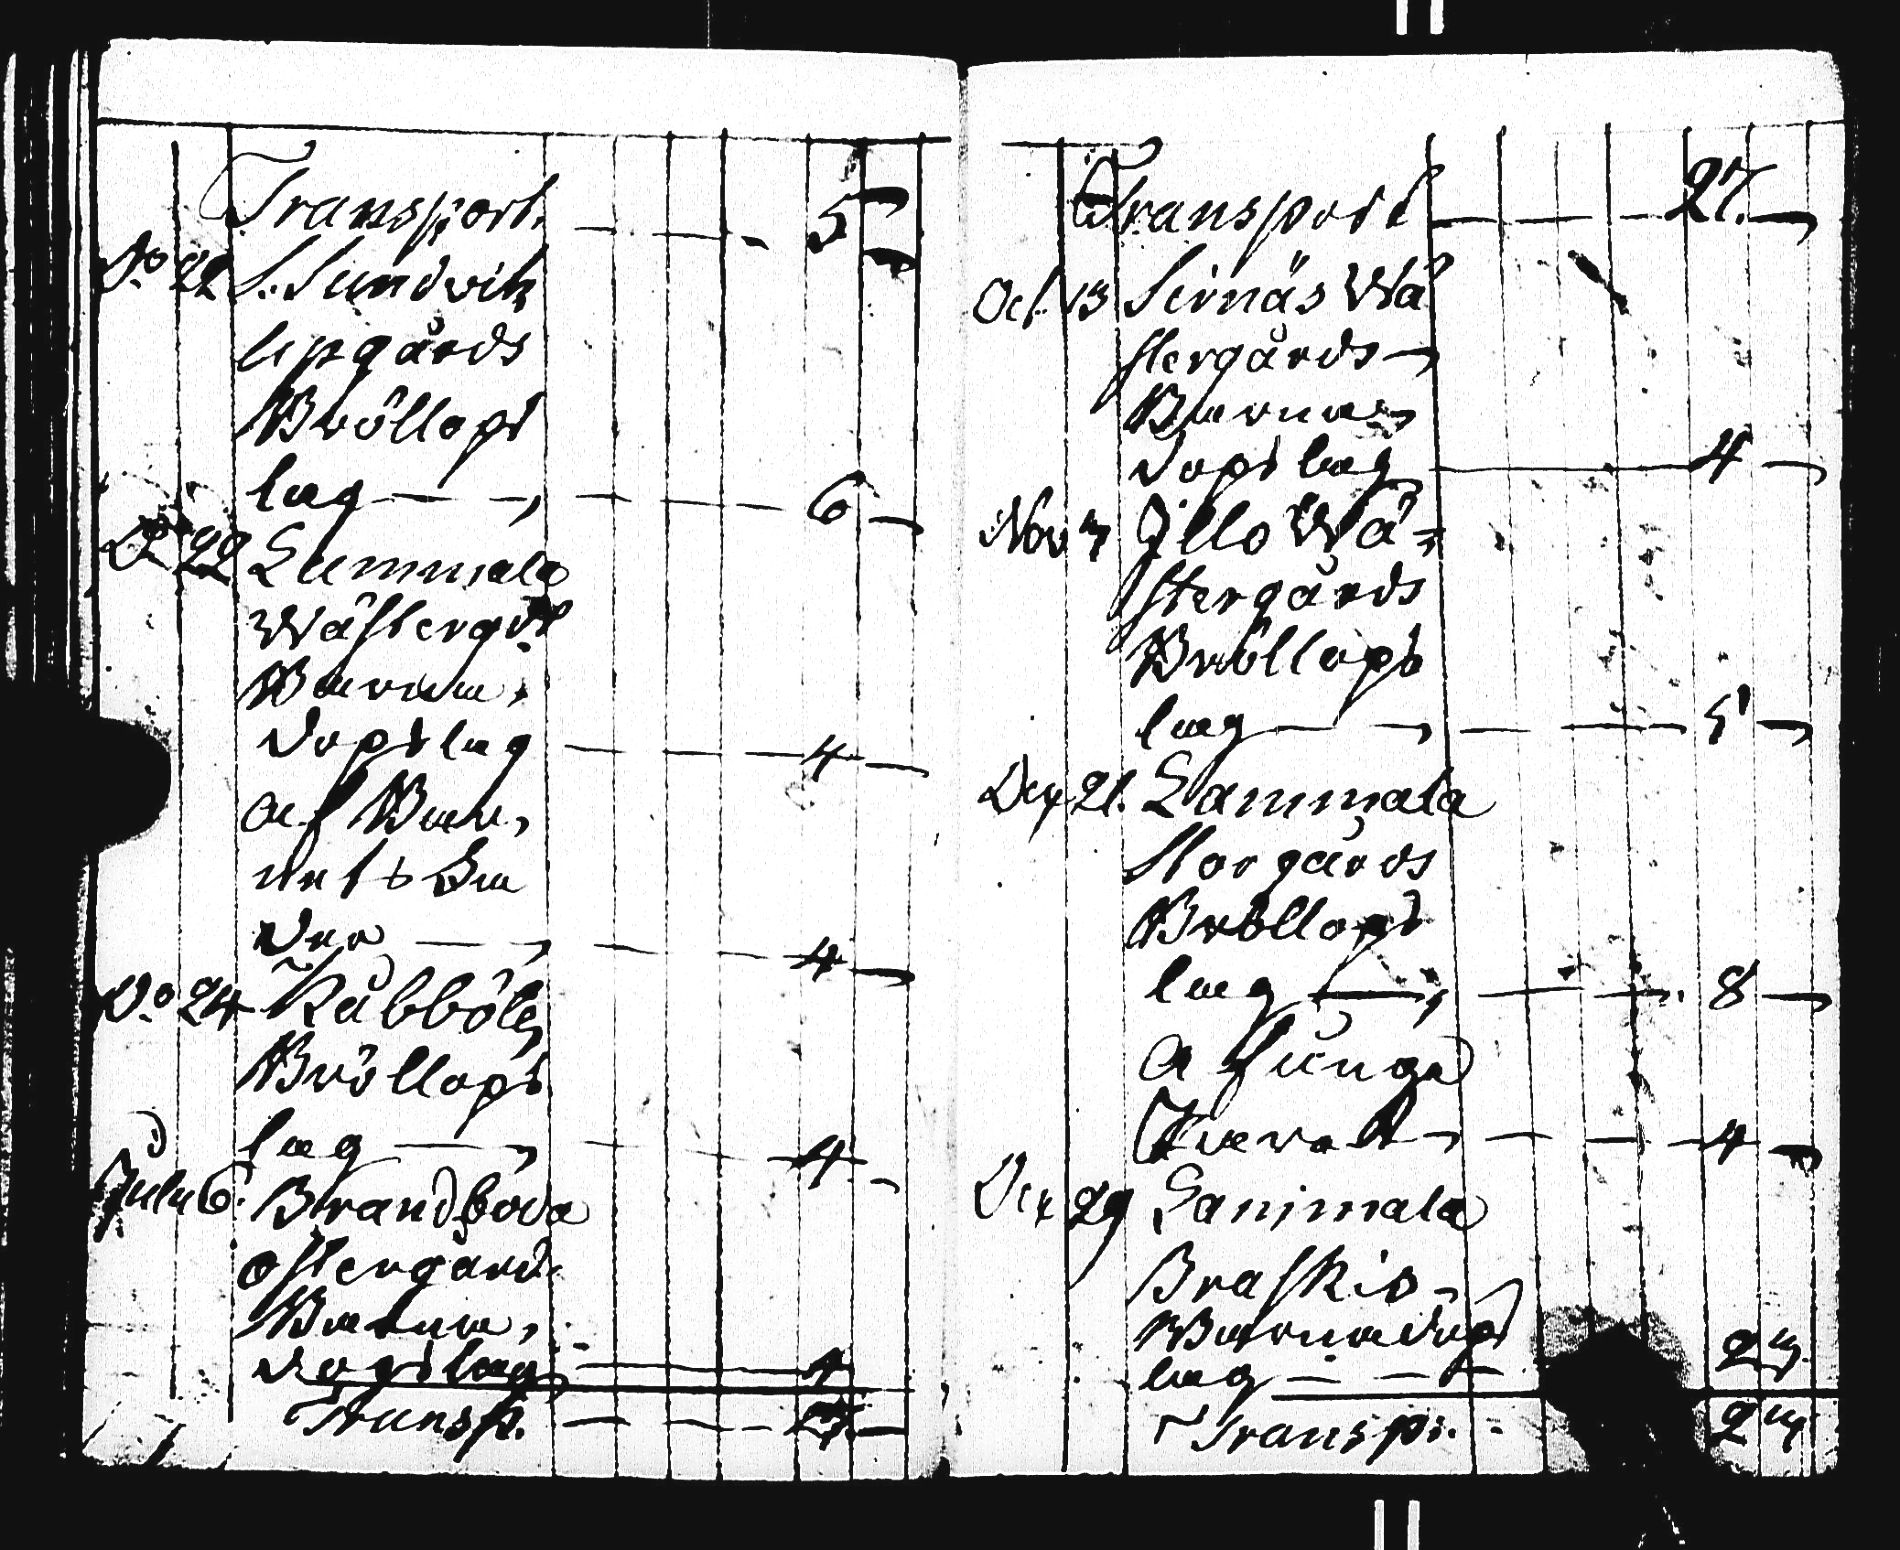 Transport. — — — 5 —
Do 22 S. Sundvik
Uppgårds
Bröllops
lag — — — — 6 —
Do 22 Lammala
Wästergds
Barna,
dops lag — — — 4 —
af Barn,
nets Fa
der — — — — 4 —
Do 24 Rabböle
Bröllops
lag — — — — 4 —
Julii 6. Brandboda
östergårds
Barna,
dopslag — — 4
Transp. — — — 27. —
Transport — — — 27. —
Oct 13 Sirnäs Wä
stergårds —
Barna,
dops lag — — 4 —
Nov 3 Illo Wä=
stergårds
Bröllops
lag — — — — 5 —
Dex 21. Lammala
Storgårds
Bröllops
lag — — — — 8 —
af unga
— — — 4 —
Dex 29 Lammala
Braskis —
Barnadops
lag — — —
Transp.